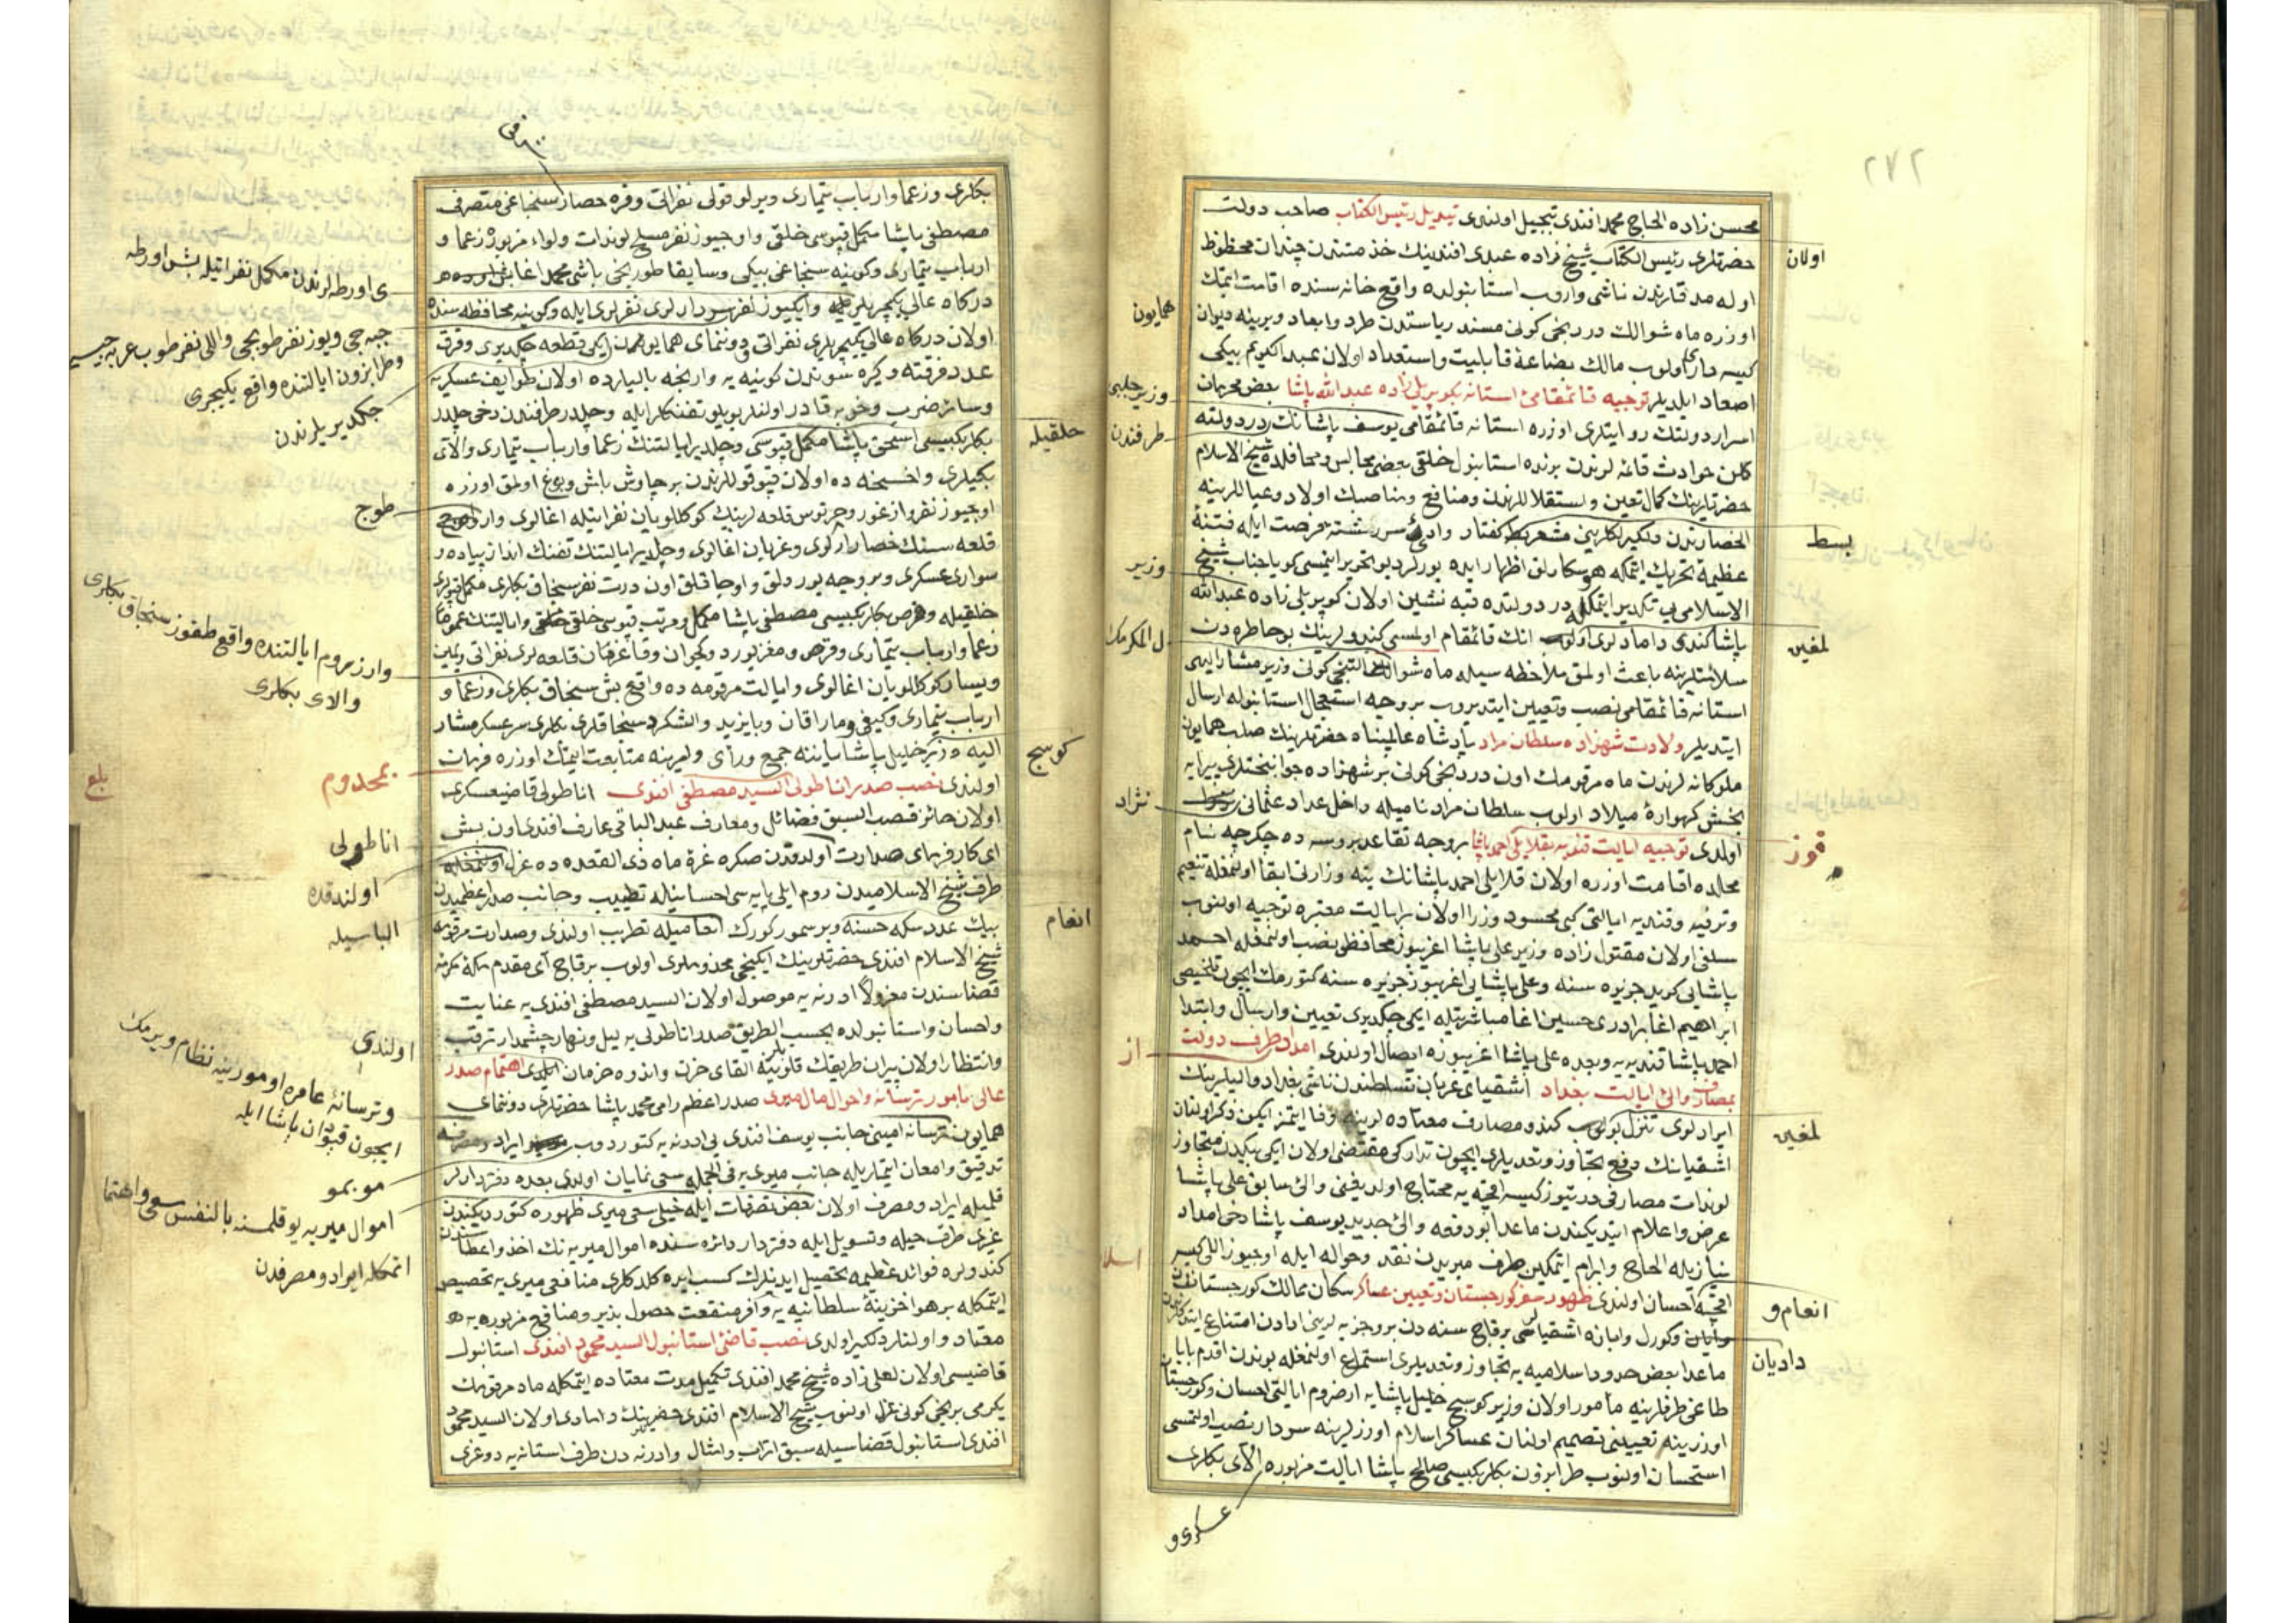 ٢٧٢
محسن زاده الحاج محمد افندی تبجیل اولندی تبدیل رئیس الکتاب صاحب دولت
حضرتلری رئیس الکتاب شیخ زاده عبدی افندینك خدمتندن چندان محظوظ
اولان
اوله مدقلرندن ناشی واروب استانبولده واقع خانه سنده اقامت ایتمك
اوزره ماه شوالك دردنجی کونی مسند ریاستدن طرد وابعاد ویرینه دیوان
همایون
کیسه داری اولوب مالك بضاعۀ قابلیت واستعداد اولان عبدالکریم بیکی
اصعاد ایلدیلر توجیه قائمقامئ استانه بکوپریلی زاده عبد الله پاشا بعض محرمان
وزیر چلبی
اسرار دولتك روایتلری اوزره استانه قائمقامی یوسف پاشانك دردولته
طرفندن
کلن حوادث قائمه لرندن برنده استانبول خلقی بعض مجالس ومحافلده شیخ الاسلام
حضرتلرینك کمال تعین واستقلاللرندن ومنافع ومناصبك اولاد وعیاللرینه
انحصارندن
بسط
کفتار وادئ سررشتۀ فرصت ایله فتنۀ
عظیمه تحریك ایتمکه هوسکارلق اظهار ایده یورلر دیو تحریر ایتمسی کویا جناب شیخ
وزیر
الاسلامی یی تکدیر ایتمکله در دولتده قبه نشین اولان کوپریلی زاده عبدالله
پاشا کندی دامادلری اولوب انك قائمقام اولمسی کندولرینك بوخاطره دن
لمغین
سلامتلرینه باعث اولمق ملاحظه سیله ماه شوالك التنجی کونی وزیر مشارالیهی
استانه قائمقامی نصب وتعیین ایتدیروب بر وجه استعجال استانبوله ارسال
ایتدیلر ولادت شهزاده سلطان مراد پادشاه عالمپناه حضرتلرینك صلب همایون
ملوکانه لرندن ماه مرقومك اون دردنجی کونی بر شهزاده جوانبختلری پیرایه
بخش کهوارۀ میلاد اولوب سلطان مراد نامیله داخل عداد عثمانی
نژاد
اولدی توجیه ایالت قندیه بقلایلی احمد پاشا بر وجه تقاعد بروسه ده چکرجه نام
محلده اقامت اوزره اولان قلایلی احمد پاشانك ینه وزارتی ابقا اولنمغله تنعیم
وترفیه وقندیه ایالتی کبی محسود وزرا اولان بر ایالت معتبره توجیه اولنوب
سلفی اولان مقتول زاده وزیر علی پاشا اغریبوز محافظی نصب اولنمغله احمد
پاشایی کرید جزیره سنه وعلی پاشایی اغریبوز جزیره سنه کتورمك ایچون تلخیصی
ابراهیم اغا برادری حسین اغا مباشرتیله ایکی چکدیری تعیین وارسال وابتدا
احمد پاشا قندیه یه وبعده علی پاشا اغریبوزه ایصال اولندی امداد طرف دولت
از
بمصارف والئ ایالت بغداد اشقیای عربان تسلطندن ناشی بغداد والیلرینك
ایرادلری تنزل بولوب کندو مصارف معتاده لرینه وفا ایتمز ایکن ذکر اولنان
لمغین
اشقیانك دفع تجاوز وتعدیلری ایچون تدارکی مقتضی اولان ایکی بیکدن متجاوز
لوندات مصارفی دریتیوز کیسه اقچه یه محتاج اولدیغنی والئ سابق علی پاشا
عرض واعلام ایتدیکندن ماعدا بو دفعه والئ جدید یوسف پاشا دخی امداد
نیازیله الحاح وابرام ایتمکین طرف میریدن نقد وحواله ایله اوچیوز اللی کیسه
اقچه احسان اولندی ظهور سفر کورجستان وتعیین عساکر سکان ممالك کورجستاندن
انعام و
وکورل وابازه اشقیاسی بر قاچ سنه دن برو جزیه لرینی ادادن امتناع
دادیان
ماعدا بعض حدود اسلامیه یه تجاوز وتعدیلری استماع اولنمغله بوندن اقدم بابا
طاغی طرفلرینه مأمور اولان وزیر کوسج خلیل پاشایه ارضروم ایالتی احسان وکورجستان
اوزرینه تعیینی تصمیم اولنان عساکر اسلام اوزرلرینه سردار نصب اولنمسی
استحسان اولنوب طرابزون بکلربکیسی صالح پاشا ایالت مزبوره الای بکلری
عسکری و
بکلری وزعما وارباب تیماری ویرلو قولی نفراتی وقره حصار سنجاغی متصرفی
مصطفی پاشا مکمل قپوسی خلقی واوچیوز نفر مسلح لوندات ولواء مزبور زعما و
ارباب تیماری وکونیه سنجاغی بیکی وسابقا طورنجی باشی محمد اغا
درکاه عالی وایکیوز نفر سردارلری نفرلری ایله وکونیه محافظه سنده
ی اورطه لرندن مکمل نفراتیله بش اورطه
جبه جی ویوز نفر طوپجی واللی نفر طوپ عربه جیسی
اولان درکاه عالی یکیچریلری نفراتی ودوننمای همایوندن ایکی قطعه چکدیری وفرق
وطرابزون ایالتنده واقع یکیچری
عدد فرقته وکیره سوندن کونیه یه وارنجه یالیلرده اولان طوایف عسکریه
چکدیریلرندن
وسائر ضرب وحربه قادر اولنلر بویلو تفنکلر ایله وچلدر طرفندن دخی چلدر
بکلربکیسی اسحق پاشا مکمل قپوسی وچلدیر ایالتنك زعما وارباب تیماری والای
خلقیله
بکیلری واخسخه ده اولان قپوقوللرندن بر چاوش باش وبوغ اولمق اوزره
اوچیوز نفر وازغور وچرتوس قلعه لرینك کوکللویان نفراتیله اغالری وارد
طوج
قلعه سنك حصار ارلری وعزبان اغالری وچلدیر ایالتنك تفنك انداز پیاده و
سواری عسکری وبر وجه یوردلق واوجاقلق اون درت نفر سنجاق بکلری مکمل قپولری
خلقیله وقرص بکلربکیسی مصطفی پاشا مکمل ومرتب قپوسی خلقی وایالتنك عموما
زعما وارباب تیماری وقرص ومغزبورد وکچوان وقاغزمان قلعه لری نفراتی ویمین
وارزیروم ایالتنده واقع طقوز سنجاق بکلری
والای بکلری
ویسار کوکللویان اغالری وایالت مرقومه ده واقع بش سنجاق بکلری وزعما و
ارباب تیماری وکیفی وماراقان وبایزید والشکرد سنجاقلری بکلری سرعسکر مشار
الیه وزیر خلیل پاشا یاننه جمع ورأی وامرینه متابعت ایتمك اوزره فرمان
کوسج
اولندی نصب صدر اناطولی السید مصطفی افندی اناطولی قاضیعسکری
بمخدوم
بلغ
اولان حائز قصب السبق فضائل ومعارف عبد الباقی عارف افندی اون بش
ای کارفرمای صدارت اولدقدن صکره غرۀ ماه ذی القعده ده عزل اولنمغله
اناطولی
طرف شیخ الاسلامیدن روم ایلی پایه سی احسانیله تطییب وجانب صدراعظمیدن
اولندقده
بیك عدد سکه حسنه وبر سمور کورك انعامیله تطریب اولندی وصدارت مرقومه
انعام
الباسیله
شیخ الاسلام افندی حضرتلرینك ایکنجی مخدوملری اولوب بر قاچ ای مقدم مکۀ مکرمه
قضاسندن معزولا ادرنه یه موصول اولان السید مصطفی افندی یه عنایت
واحسان واستانبولده بحسب الطریق صدر اناطولی یه لیل ونهار چشمدار ترقب
اولندی
وانتظار اولان پیران طریقك قلوبینه القای حزن واندوه حرمان ایلدی اهتمام صدر
عالی بامور ترسانه واحوال مال میری صدر اعظم رامی محمد پاشا حضرتلری دوننمای
وترسانۀ عامره امورینه نظام ویرمك
ایچون قپودان پاشا ایله
همایون ترسانه امینی جانب یوسف افندی یی ادرنه یه کتوردوب ایراد ومصرفنه
تدقیق وامعان ایتدیریله جانب میری یه فی الجمله سعی نمایان اولدی بعده دفتردارلر
موبمو
قلیله ایراد ومصرف اولان بعض تصرفات ایله خیلی سعی میری ظهوره کتوردیکندن
اموال میریه یوقلمسنه بالنفس سعی واهتمام
غیری طرف حیله وتسویل ایله دفتردار دائره سنده اموال میریه نك اخذ واعطاسندن
ایتمکله ایراد ومصرفدن
کندولره فوائد عظیمه تحصیل ایدنلرك کسب ایده کلدکلری منافعی میری یه تخصیص
ایتمکله بر هوا خزینۀ سلطانیه یه وافر منفعت حصول پذیر ومنافع مزبوره یه
معتاد اولنلر دلکیر اولدی نصب قاضئ استانبول السید محمود افندی استانبول
قاضیسی اولان لعلی زاده شیخ محمد افندی تکمیل مدت معتاده ایتمکله ماه مرقومك
یکرمی برنجی کونی عزل اولنوب شیخ الاسلام افندی حضرتلرینك دامادی اولان السید محمود
افندی استانبول قضاسیله سبق اتراب وامثال وادرنه دن طرف استانه یه دوغری